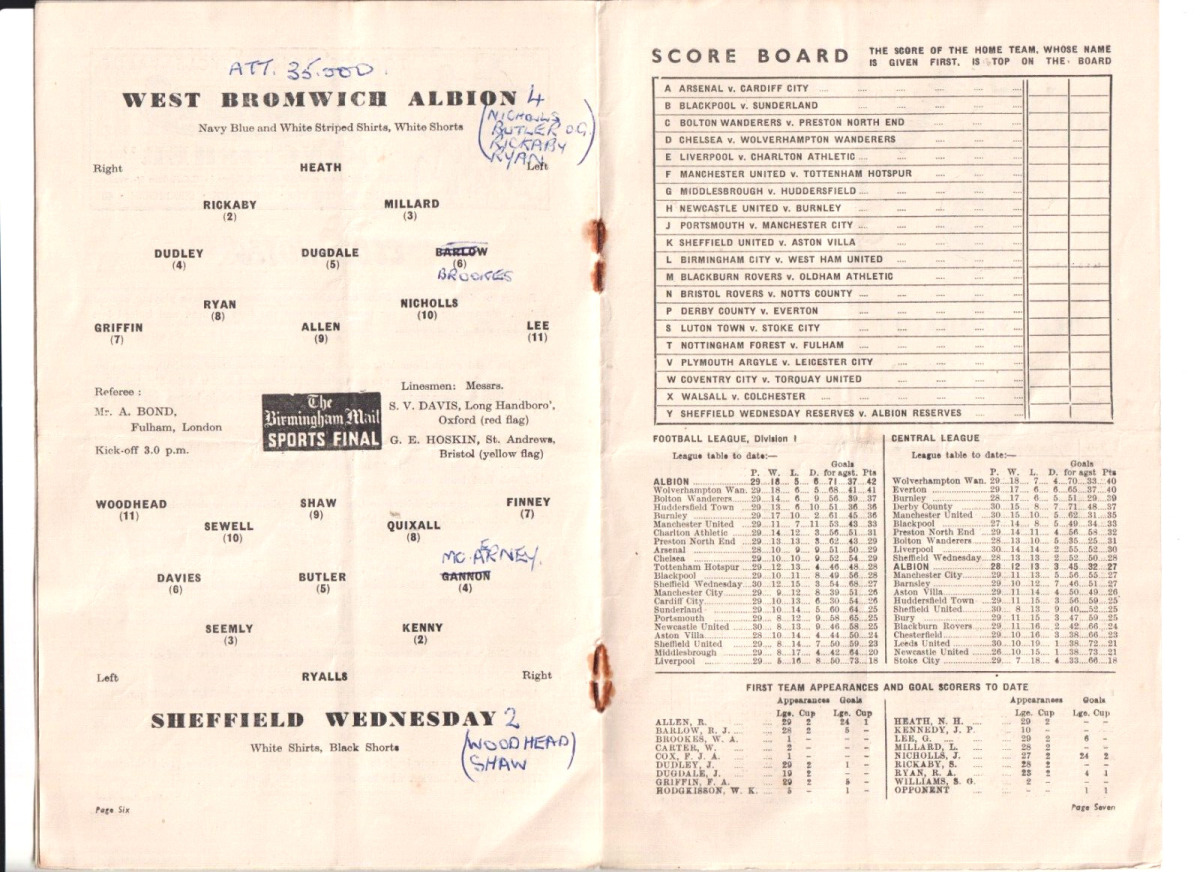 ATT. 35.000.
WEST BROMWICH ALBION 4
Navy Blue and White Striped Shirts, White Shorts
(NICHOLLS
BUTLER O.G.
RICKABY
RYAN)
Right HEATH Left
RICKABY MILLARD
(2) (3)
DUDLEY DUGDALE BARLOW
(4) (5) (6)
BROOKES
RYAN NICHOLLS
(8) (10)
GRIFFIN ALLEN LEE
(7) (9) (11)
Referee :
Mr. A. BOND,
Fulham, London
Kick-off 3.0 p.m.
The
Birmingham Mail
SPORTS FINAL
Linesmen: Messrs.
S. V. DAVIS, Long Handboro',
Oxford (red flag)
G. E. HOSKIN, St. Andrews,
Bristol (yellow flag)
WOODHEAD SHAW FINNEY
(11) (9) (7)
SEWELL QUIXALL
(10) (8)
MC. EARNEY.
DAVIES BUTLER GANNON
(6) (5) (4)
SEEMLY KENNY
(3) (2)
Left RYALLS Right
SHEFFIELD WEDNESDAY 2
White Shirts, Black Shorts
(WOODHEAD)
SHAW
Page Six
SCORE BOARD
THE SCORE OF THE HOME TEAM, WHOSE NAME
IS GIVEN FIRST, IS TOP ON THE BOARD
A ARSENAL v. CARDIFF CITY
B BLACKPOOL v. SUNDERLAND
C BOLTON WANDERERS v. PRESTON NORTH END
D CHELSEA v. WOLVERHAMPTON WANDERERS
E LIVERPOOL v. CHARLTON ATHLETIC
F MANCHESTER UNITED v. TOTTENHAM HOTSPUR
G MIDDLESBROUGH v. HUDDERSFIELD
H NEWCASTLE UNITED v. BURNLEY
J PORTSMOUTH v. MANCHESTER CITY
K SHEFFIELD UNITED v. ASTON VILLA
L BIRMINGHAM CITY v. WEST HAM UNITED
M BLACKBURN ROVERS v. OLDHAM ATHLETIC
N BRISTOL ROVERS v. NOTTS COUNTY
P DERBY COUNTY v. EVERTON
S LUTON TOWN v. STOKE CITY
T NOTTINGHAM FOREST v. FULHAM
V PLYMOUTH ARGYLE v. LEICESTER CITY
W COVENTRY CITY v. TORQUAY UNITED
X WALSALL v. COLCHESTER
Y SHEFFIELD WEDNESDAY RESERVES v. ALBION RESERVES
FOOTBALL LEAGUE, Division I
League table to date:—
Goals
P. W. L. D. for agst. Pts
ALBION 29 18 5 6 71 37 42
Wolverhampton Wan. 29 18 6 5 68 41 41
Bolton Wanderers 29 14 6 9 56 39 37
Huddersfield Town 29 13 6 10 51 36 36
Burnley 29 17 10 2 61 45 36
Manchester United 29 11 7 11 53 43 33
Charlton Athletic 29 14 12 3 56 51 31
Preston North End 29 13 13 3 62 43 29
Arsenal 28 10 9 9 51 50 29
Chelsea 29 10 10 9 52 54 29
Tottenham Hotspur 29 12 13 4 46 48 28
Blackpool 29 10 11 8 49 56 28
Sheffield Wednesday 30 12 15 3 54 68 27
Manchester City 29 9 12 8 39 51 26
Cardiff City 29 10 13 6 30 54 26
Sunderland 29 10 14 5 60 64 25
Portsmouth 29 8 12 9 58 65 25
Newcastle United 30 8 13 9 46 58 25
Aston Villa 28 10 14 4 44 50 24
Sheffield United 29 8 14 7 50 59 23
Middlesbrough 29 8 17 4 42 64 20
Liverpool 29 5 16 8 50 73 18
CENTRAL LEAGUE
League table to date:—
Goals
P. W. L. D. for agst Pts
Wolverhampton Wan. 29 18 7 4 70 33 40
Everton 29 17 6 6 65 37 40
Burnley 28 17 6 5 51 29 39
Derby County 30 15 8 7 71 48 37
Manchester United 30 15 10 5 62 31 35
Blackpool 27 14 8 5 49 34 33
Preston North End 29 14 11 4 56 58 32
Bolton Wanderers 28 13 10 5 35 25 31
Liverpool 30 14 14 2 55 52 30
Sheffield Wednesday 28 13 13 2 52 50 28
ALBION 28 12 13 3 45 32 27
Manchester City 29 11 13 5 56 55 27
Barnsley 29 10 12 7 46 51 27
Aston Villa 29 11 14 4 50 49 26
Huddersfield Town 29 11 15 3 56 59 25
Sheffield United 30 8 13 9 40 52 25
Bury 29 11 15 3 47 59 25
Blackburn Rovers 29 11 16 2 42 66 24
Chesterfield 29 10 16 3 38 66 23
Leeds United 30 10 19 1 38 72 21
Newcastle United 26 10 15 1 38 73 21
Stoke City 29 7 18 4 33 66 18
FIRST TEAM APPEARANCES AND GOAL SCORERS TO DATE
Appearances Goals
Lge. Cup Lge. Cup
ALLEN, R. 29 2 24 1
BARLOW, R. J. 28 2 5 -
BROOKES, W. A. 1 - - -
CARTER, W. 2 - - -
COX, F. J. A. 1 - - -
DUDLEY, J. 29 2 1 -
DUGDALE, J. 19 2 - -
GRIFFIN, F. A. 29 2 5 -
HODGKISSON, W. K. 5 - 1 -
Appearances Goals
Lge. Cup Lge. Cup
HEATH, N. H. 29 2 - -
KENNEDY, J. P. 10 - - -
LEE, G. 29 2 6 -
MILLARD, L. 28 2 - -
NICHOLLS, J. 27 2 24 2
RICKABY, S. 28 2 - -
RYAN, R. A. 23 2 4 1
WILLIAMS, S. G. 2 - - -
OPPONENT - - 1 1
Page Seven